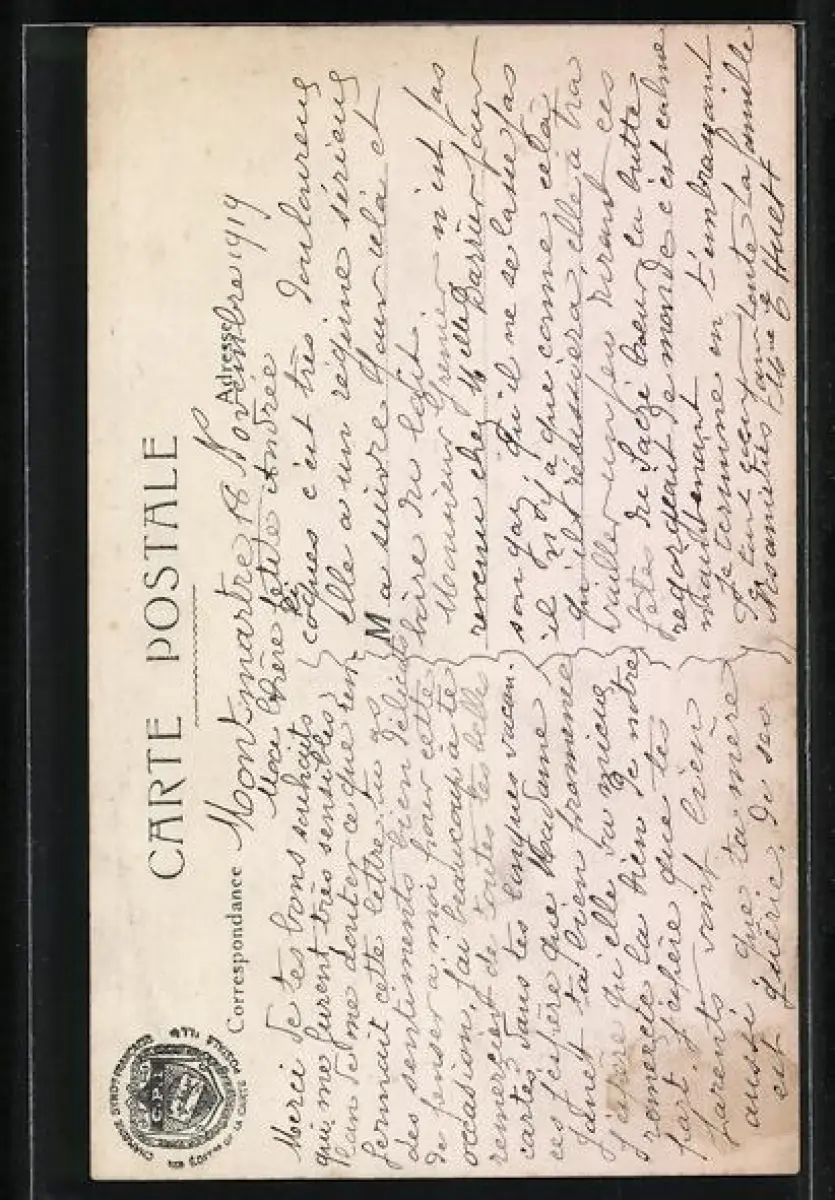 CARTE POSTALE
Correspondance
Adresse
Montmartre 18 Novembre 1919
Ma chère petite Andrée
Merci de tes bons souhaits
qui me furent très sensibles,
de me douter ce que ren
fermait cette lettre, tu as
des sentiments bien délicats
de penser à moi pour cette
occasion, j'ai beaucoup à te
remercier de toutes tes belles
cartes dans tes longues vacan-
ces j'espère que Madame
Janet t'a bien promenée
j'espère qu'elle va mieux
remercie la bien de notre
part. j'espère que tes
parents vont bien
aussi, que ta mère
est guérie, de ses
coques c'est très douloureux
Elle a un régime sérieux
M a suivre pour cela et
boire du lait.
Monsieur Grenier n'est pas
revenu chez Melle Barrier pour
son gaz, qu'il ne se lasse pas
il n'y a que comme celà
qu'il réussiera, elle a tra
vailler un peu durant ces
fêtes du Sacré Cœur la butte
regorgeait de monde c'est calme
maintenant
Je termine en t'embrassant
de tout cœur, toute la famille
Nos amitiés Mme E Huet